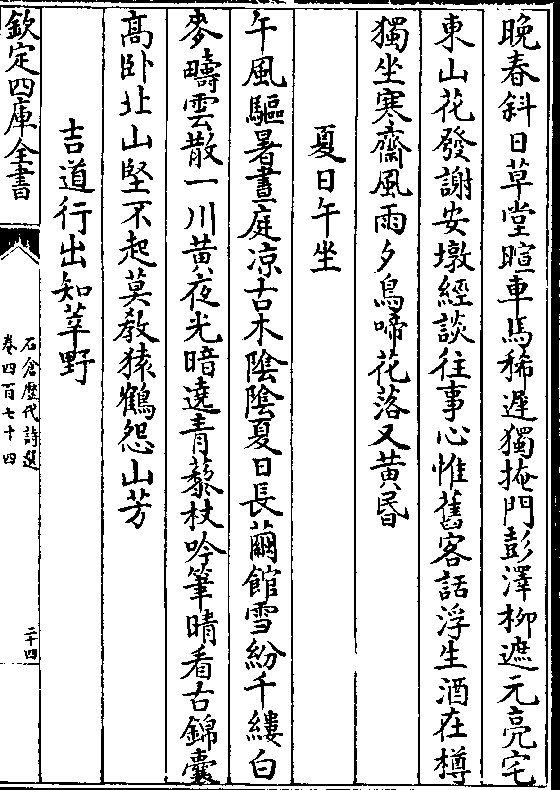 晚春斜日草堂暄車馬稀遲獨掩門彭澤柳遮元亮宅
東山花發謝安墩經談往事心惟舊客話浮生酒在樽
獨坐寒齋風雨夕鳥啼花落又黄昏
夏日午坐
午風驅暑晝庭凉古木陰陰夏日長繭館雪紛千縷白
麥疇雲散一川黄夜光暗遶青藜杖吟筆晴看古錦囊
高卧北山堅不起莫教猿鶴怨山芳
吉道行出知莘野
欽定四庫全書
石倉歷代詩選
卷四百七十四
二十四